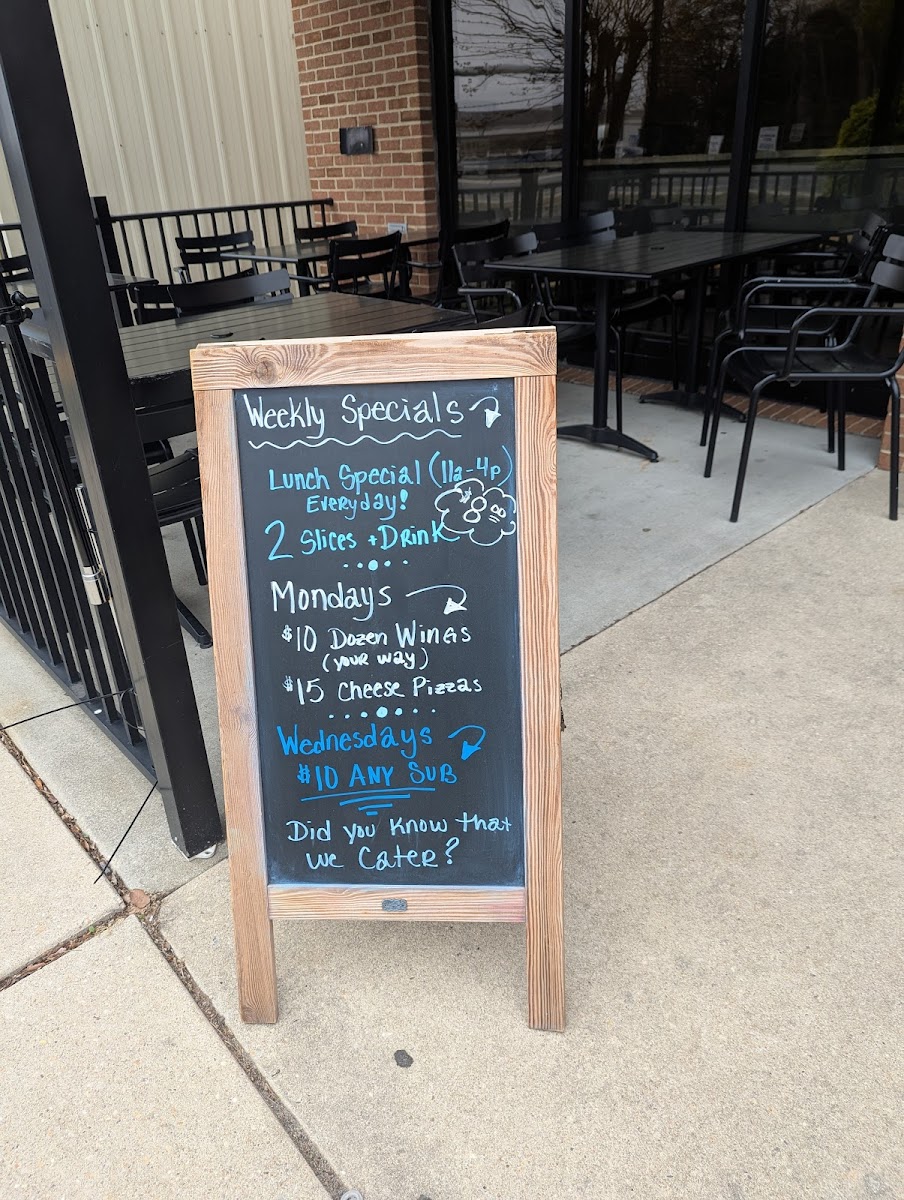 Weekly Specials
Lunch Special (11a-4p)
Everyday!
$8.00
2 Slices + Drink
Mondays
$10 Dozen Wings
(your way)
$15 Cheese Pizzas
Wednesdays
$10 ANY SUB
Did you know that
we Cater?